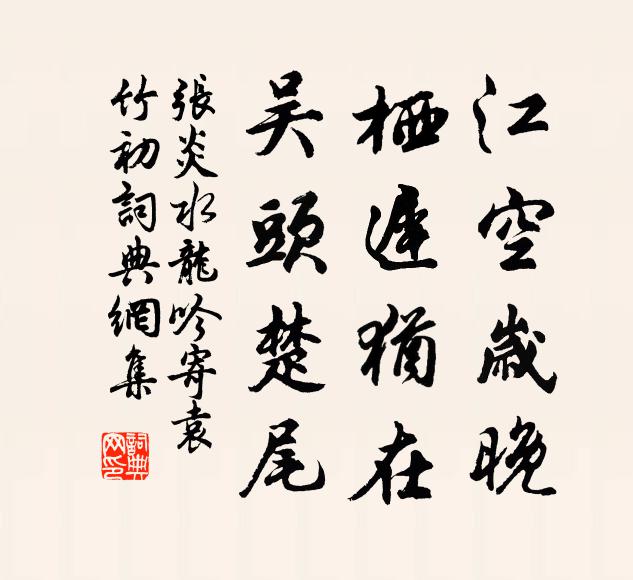 江空歲晚
栖遲猶在
吴頭楚尾
張炎水龍吟寄袁
竹初詞典網集
詞典網印